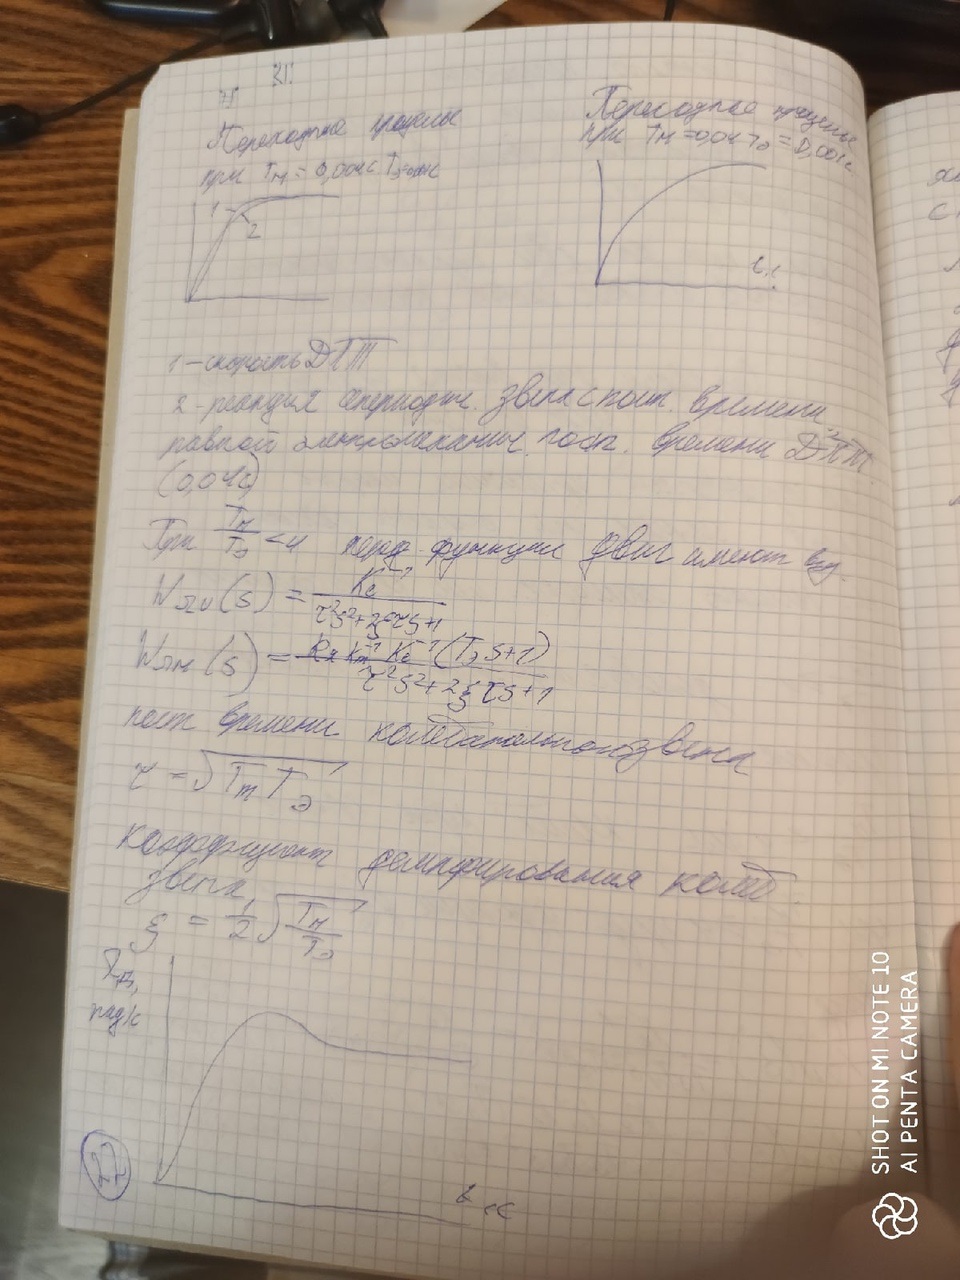 ЗГ.
Переходные процессы
при Tм = 0,004с Tэ=
1
2
Переходные процессы
при Tм =0,04 Tэ = 0,001с
t,с
1 – скорость ДПТ
2 - реакция апериодич. звена с пост. времени
равной электромеханич. пост. времени ДПТ
(0,04с)
При Tм/Tэ < 4 перед. функции двиг имеют вид.
WΩU(s) = Ke⁻¹ / τ²s²+2ξτs+1
WΩM(s) = Rя Kм⁻¹ Ke⁻¹(Tэ s+1) / τ²s²+2ξτs+1
пост времени колебательного звена
τ = √Tm Tэ
Коэффициент демпфирования колеб.
звена
ξ = 1/2 √Tм/Tэ
рад/с
t, с
27
SHOT ON MI NOTE 10
AI PENTA CAMERA